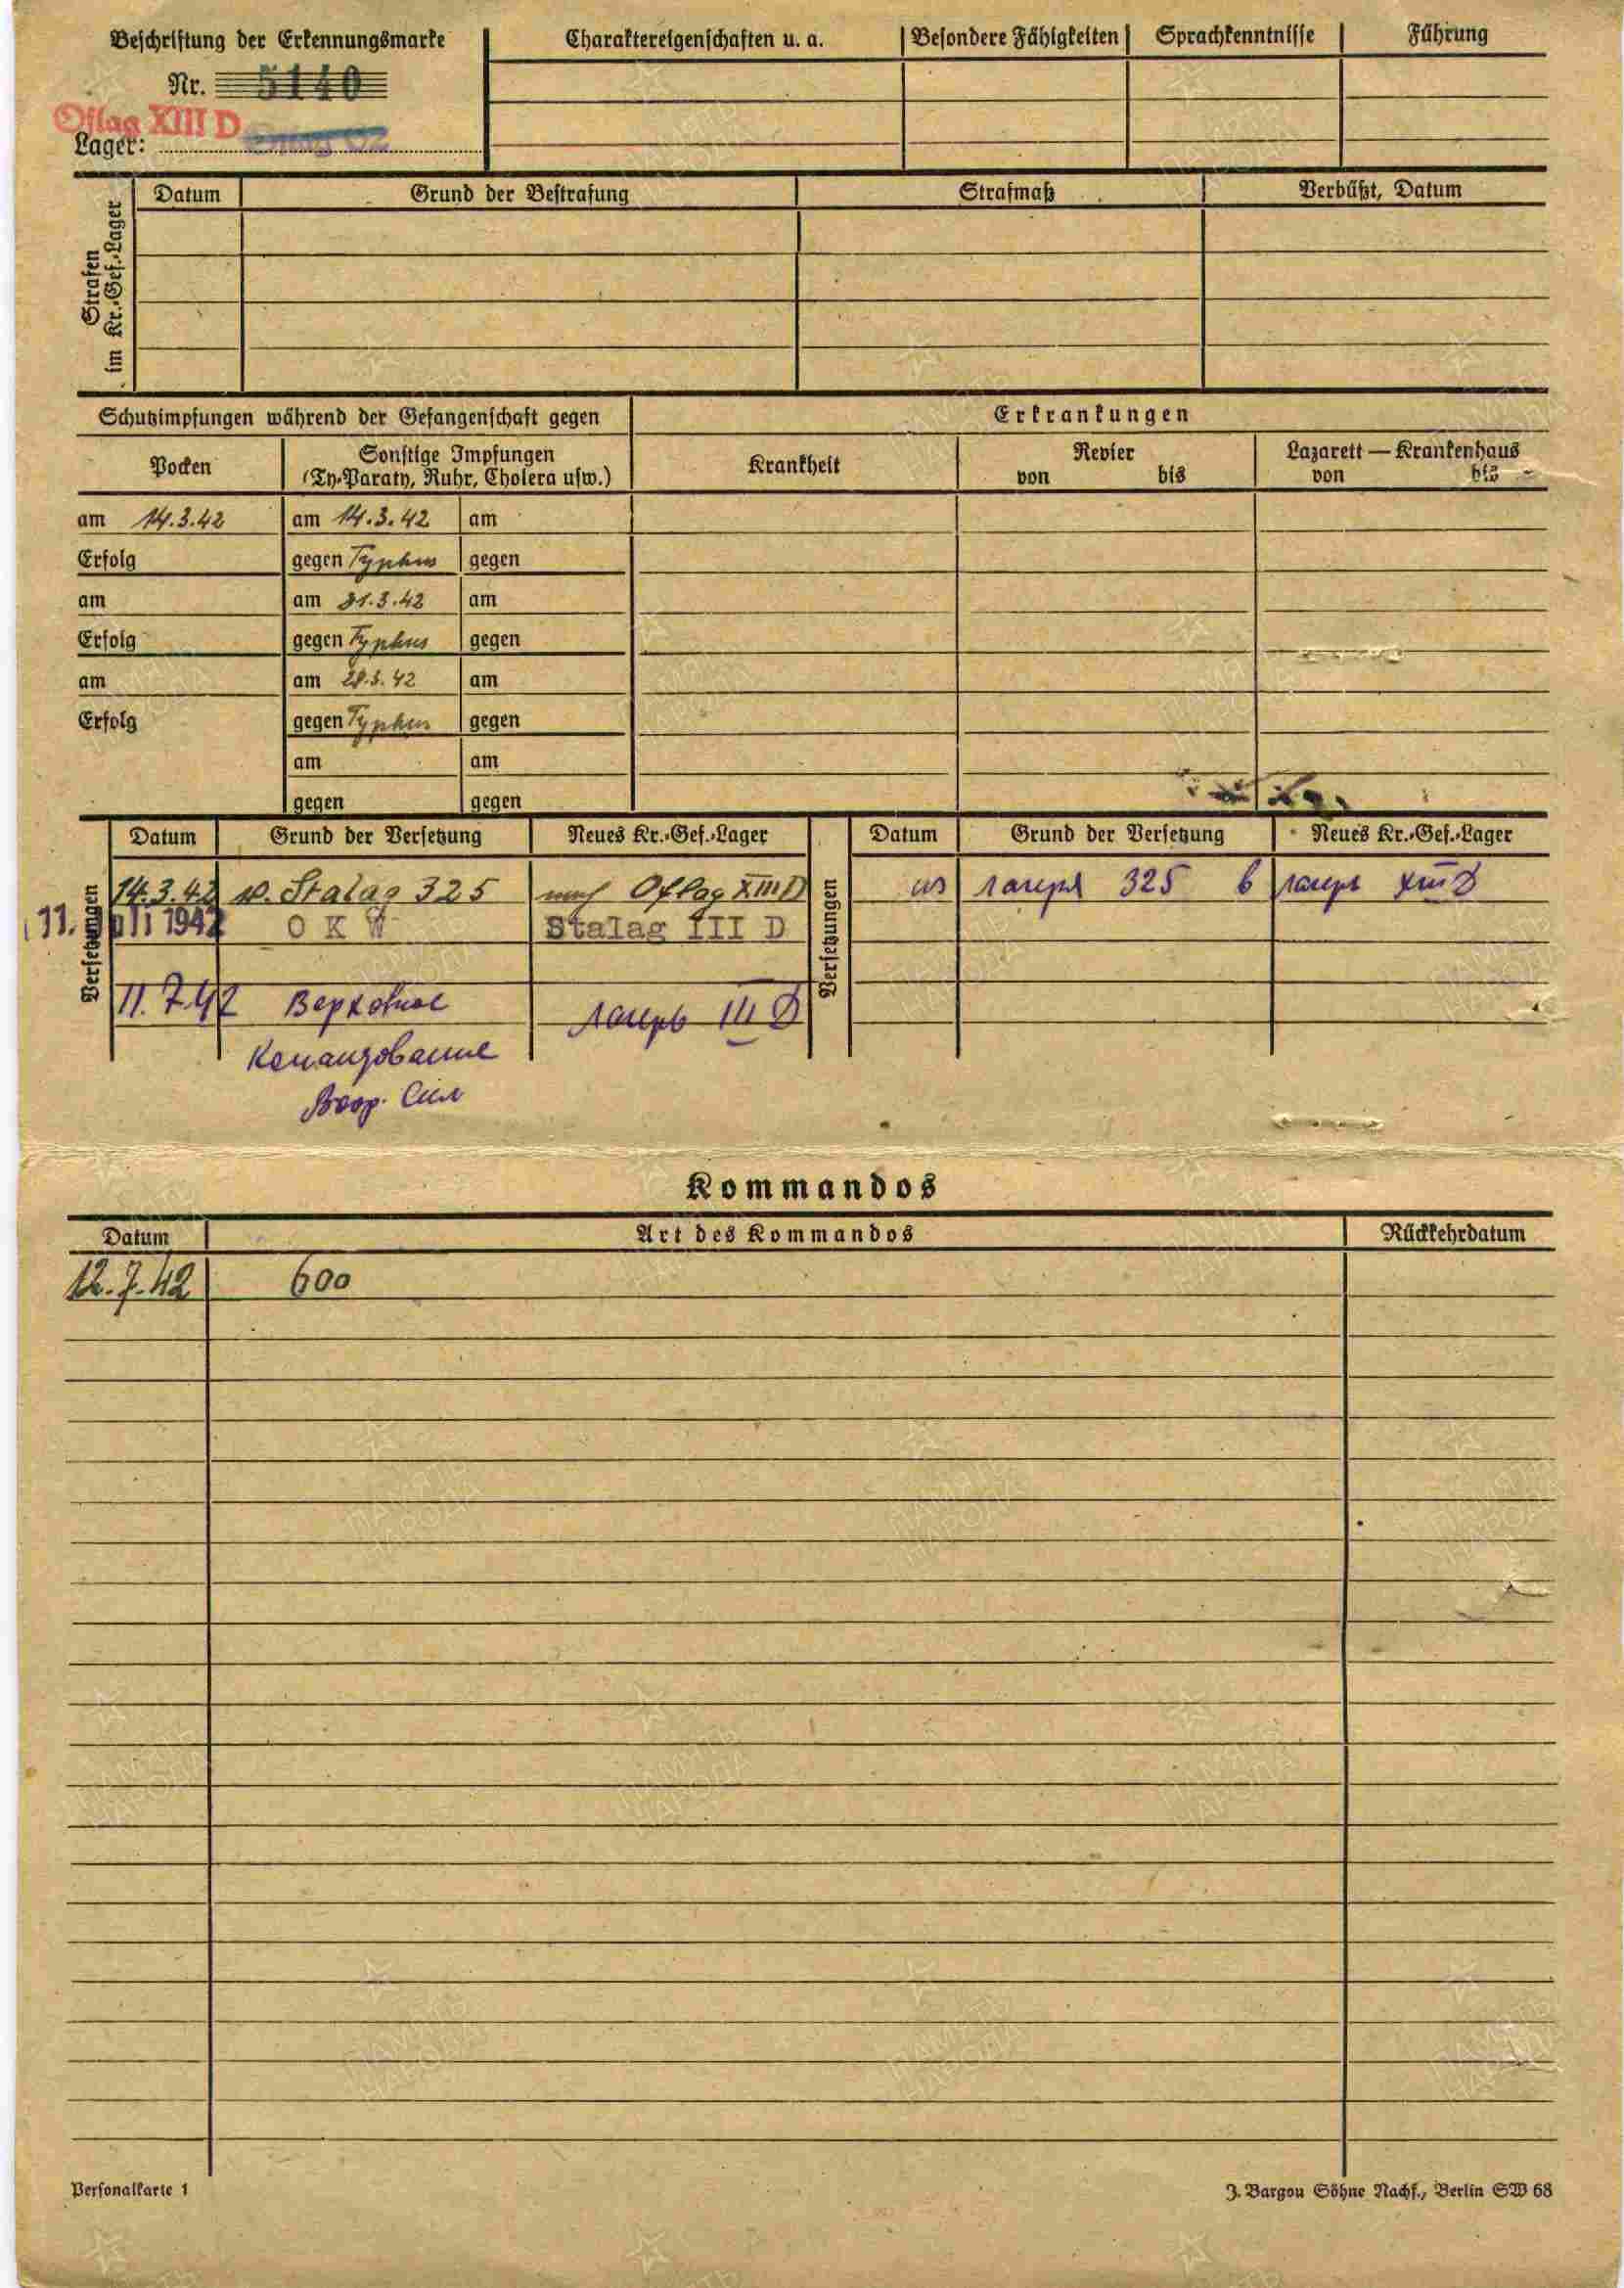 Beschriftung der Erkennungsmarke
Nr. 5140
Oflag XIII D
Lager:
Charaktereigenschaften u. a.
Besondere Fähigkeiten
Sprachkenntnisse
Führung
Strafen im Kr.-Gef.-Lager
Datum
Grund der Bestrafung
Strafmaß
Verbüßt, Datum
Schutzimpfungen während der Gefangenschaft gegen
Erkrankungen
Pocken
Sonstige Impfungen
(Ty-Paraty, Ruhr, Cholera usw.)
Krankheit
Revier
von bis
Lazarett — Krankenhaus
von bis
am 14.3.42 am 14.3.42 am
Erfolg gegen Typhus gegen
am am 21.3.42 am
Erfolg gegen Typhus gegen
am am 28.3.42 am
Erfolg gegen Typhus gegen
am am
gegen gegen
Versetzungen
Datum Grund der Versetzung Neues Kr.-Gef.-Lager
14.3.42 v. Stalag 325 nach Oflag XIII D
11. Juli 1942 O K W Stalag III D
11.7.42 Верховное лагерь III D
Командование
Воор. Сил
Versetzungen
Datum Grund der Versetzung Neues Kr.-Gef.-Lager
из лагеря 325 в лагерь XIII D
Kommandos
Datum Art des Kommandos Rückkehrdatum
12.7.42 600
Personalkarte 1
J. Bargou Söhne Nachf., Berlin SW 68
ПАМЯТЬ
НАРОДА